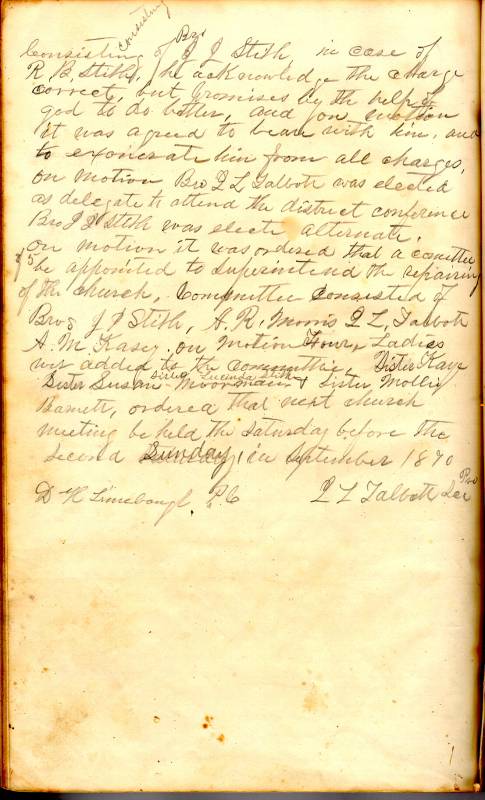 consisting
Consisting of Bro J J Stith in case of
R. B. Stith, he acknowledge the charge
correct, but promises by the help of
god to do better, and on motion
it was agreed to bear with him, and
to exonerate him from all charges,
on motion Bro Q L Talbott was elected
as delegate to attend the district conference
Bro J J Stith was electe alternate,
on motion it was ordered that a comittee
of 5 be appointed to superintend the repairing
of the church, Committee Consisted of
Bros J J Stith, A. R. Morris Q L, Talbott
A. M. Kasey, on motion Four Ladies
wer added to the committie, Sister Kaye
Sister Susan Moorman & Sister Mollie
Barnett, ordered that next church
meeting be held the Saturday before the
second Sunday, in September 1870
D H Q L Talbott Sec
Pro